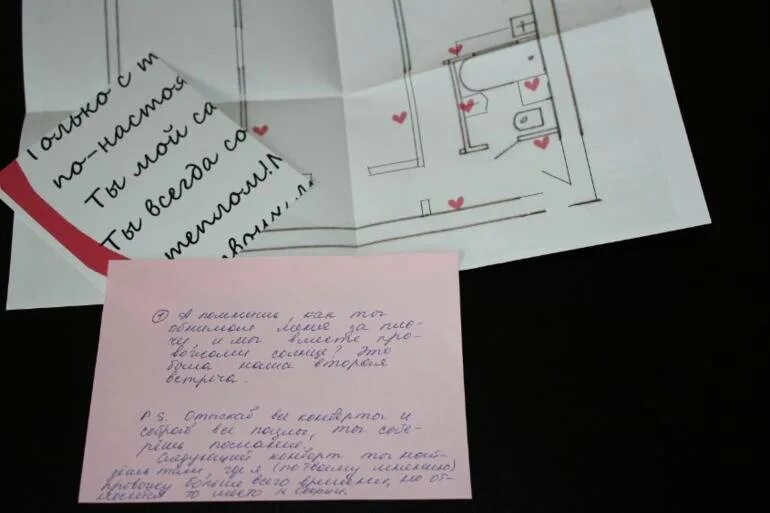 Только с т
по-настоя
Ты мой са
Ты всегда со
теплом! 
① А помнишь, как ты
обнимал меня за пле-
чи, и мы вместе про-
вожали солнце? Это
была наша вторая
встреча.
P.S. Отыскав все конверты и
собрав все пазлы, ты собе-
рёшь послание.
Следующий конверт ты най-
дёшь там, где я (по твоему мнению)
провожу больше всего времени, но от-
то место к